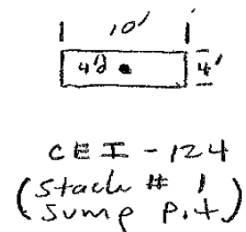 10'
4' 4'
CEI-124
(Stack # 1
Sump pit)